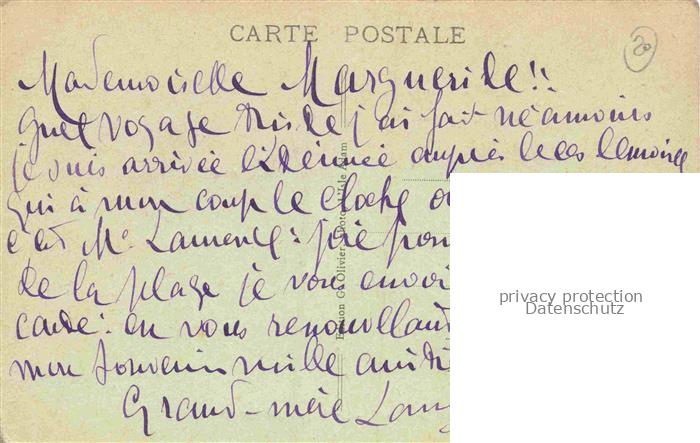 CARTE POSTALE
20
Mademoiselle Marguerite!!
Quel voyage triste j'ai fait néamoins
je suis arrivée exténuée auprès
qui à mon coup de cloche
c'est Me
de la plage je vous envoi
carte: en vous renouvellant
mon souvenir mille
Grand-mère
Edition G. Olivier, Photo. L'Isle Adam
privacy protection
Datenschutz